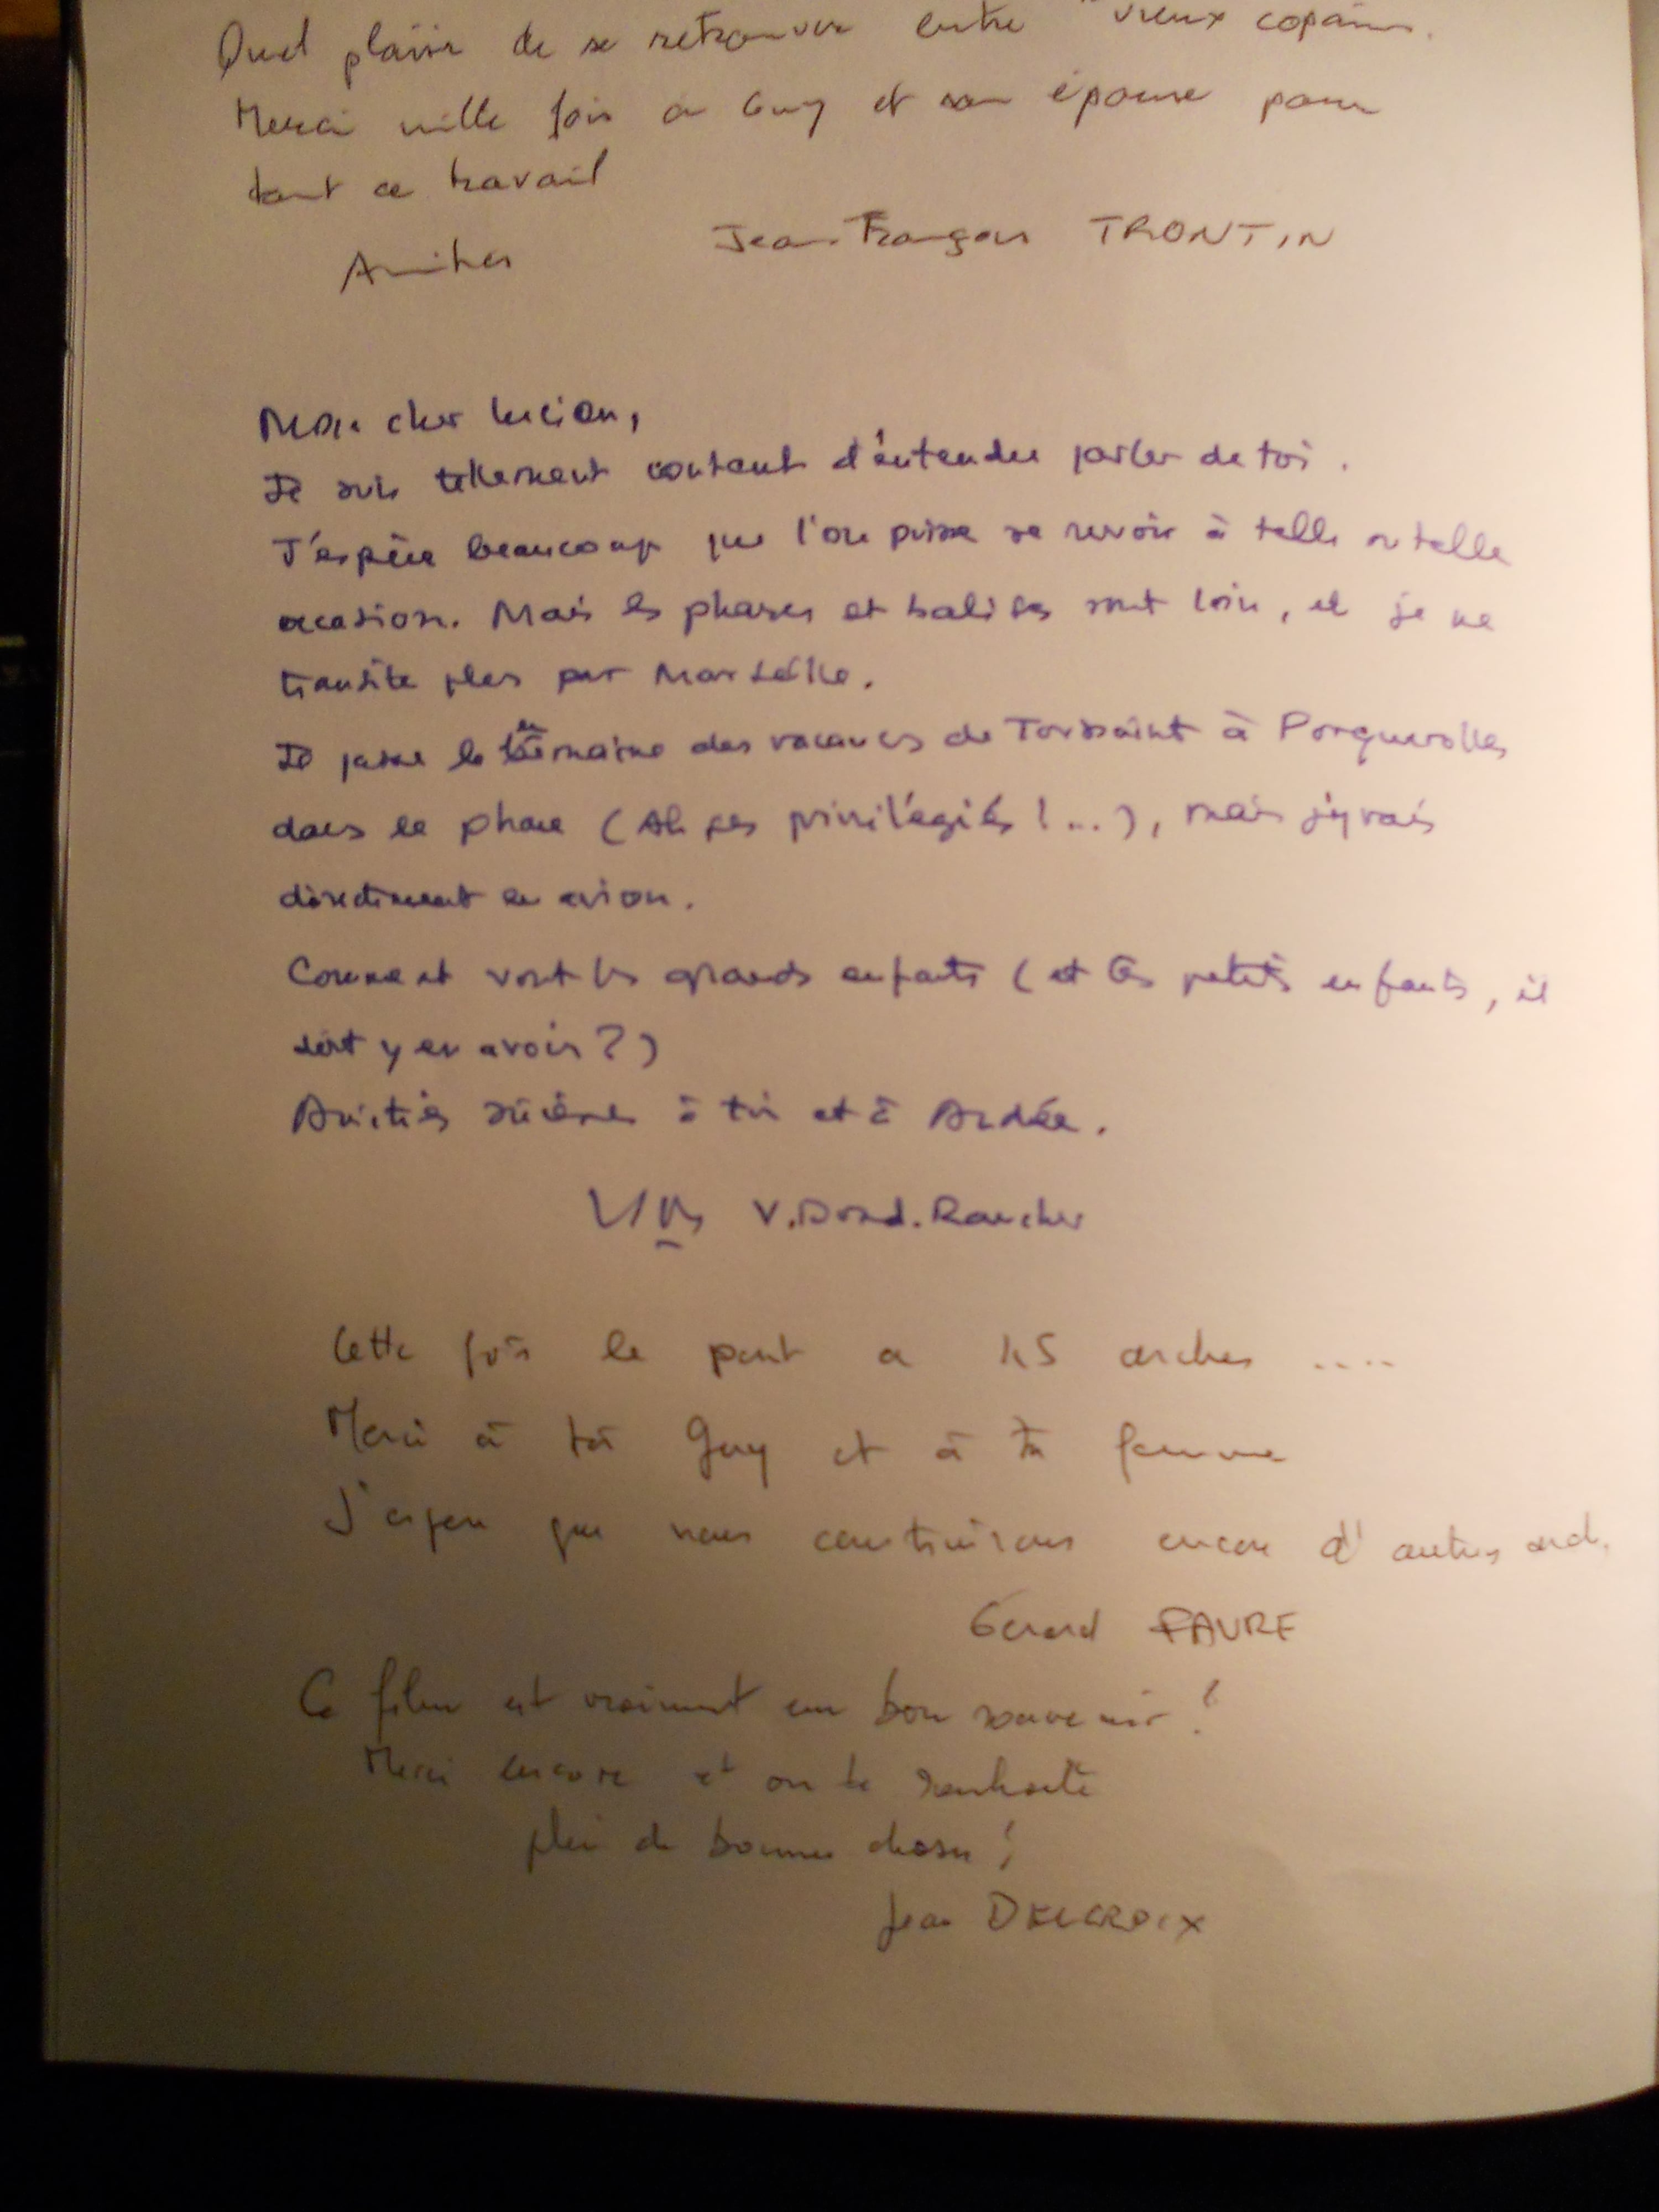 Quel plaisir de se retrouver entre "vieux copains.
Merci mille fois à Guy et son épouse pour
tout ce travail
Amitiés Jean-François TRONTIN
Mon cher Lucien,
Je suis tellement content d'entendre parler de toi.
J'espère beaucoup que l'on puisse se revoir à telle ou telle
occasion. Mais les phares et balises sont loin, et je ne
transite plus par Marseille.
Je passe la semaine des vacances de Toussaint à Porquerolles
dans le phare (Ah ces privilégiés !...), mais j'y vais
directement en avion.
Comment vont les grands enfants (et les petits enfants, il
doit y en avoir ?)
Amitiés sincères à toi et à Andrée.
V.
Cette fois le pont a 45 arches ....
Merci à toi Guy et à ta femme
J'espère que nous construirons encore d'autres arch.
Gérard FAVRE
Ce film est vraiment un bon souvenir !
Merci encore et on te souhaite
plein de bonnes choses !
Jean DELCROIX